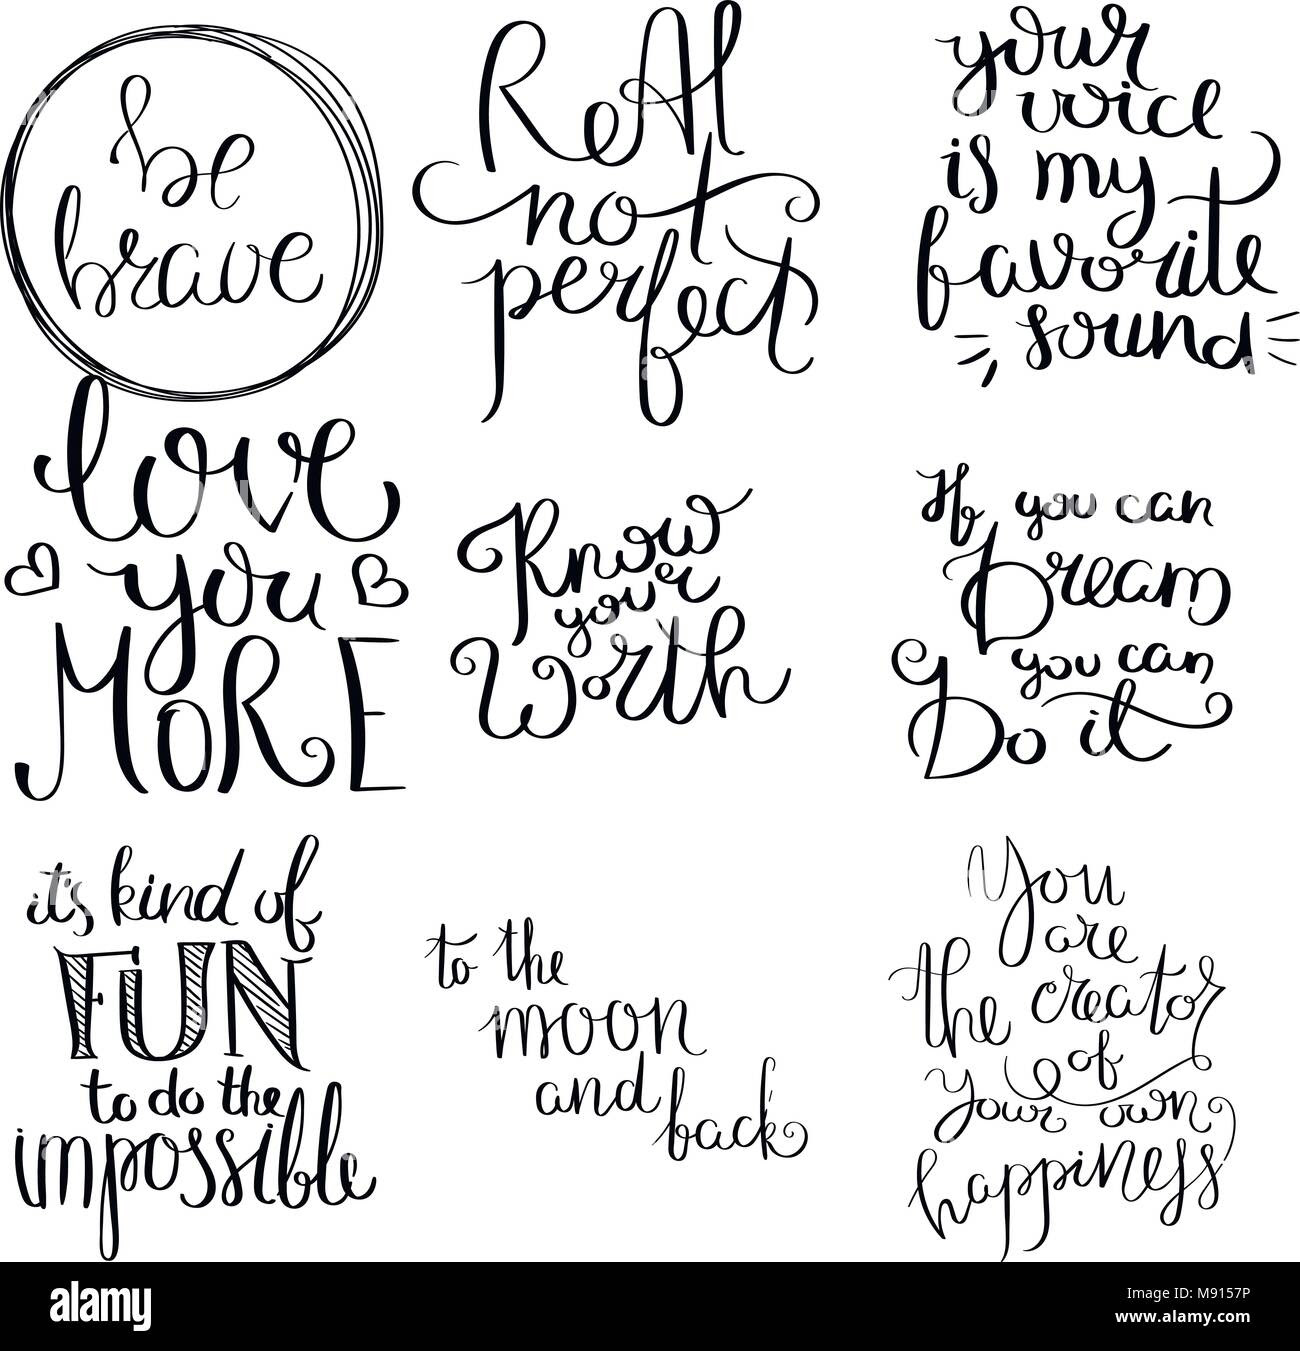 be
brave
ReAl
not
perfect
your
voice
is my
favorite
sound
love
you
MORE
Know
your
Worth
If you can
Dream
you can
Do it
it's kind of
FUN
to do the
impossible
to the
moon
and
back
You
are
the creator
of
your own
happiness
alamy stock photo
M9157P